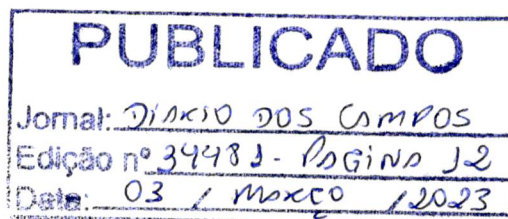 PUBLICADO
Jornal: DIÁRIO DOS CAMPOS
Edição nº 34481 - PÁGINA 12
Data: 03 / MARÇO / 2023